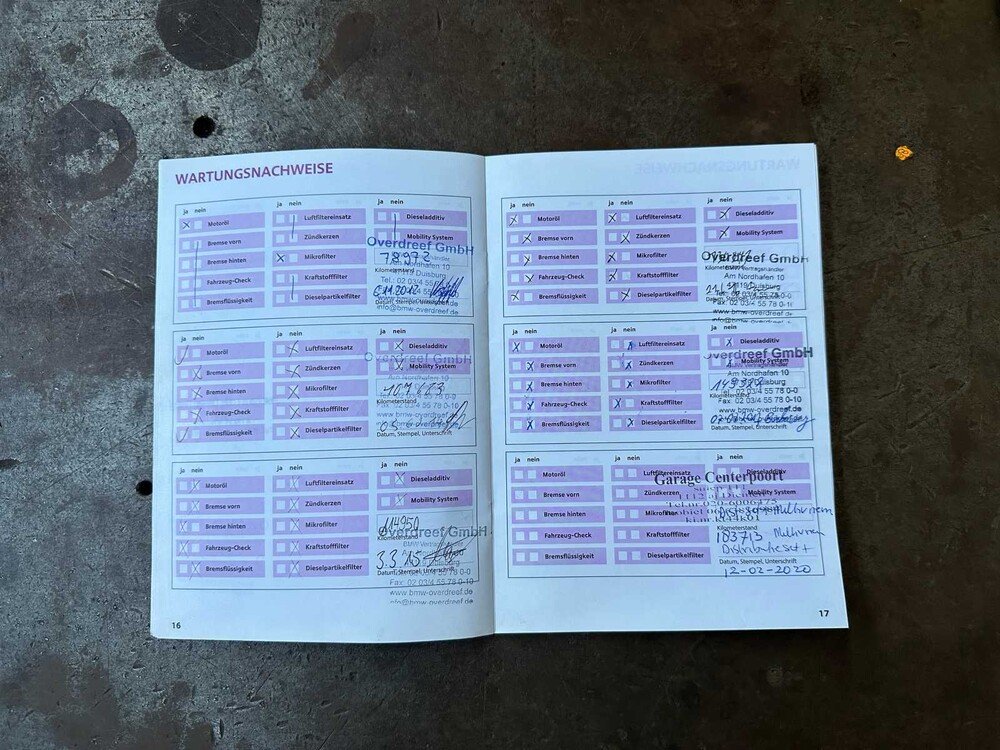 WARTUNGSNACHWEISE
ja nein
ja nein
ja nein
Motoröl
Luftfiltereinsatz
Dieseladditiv
Bremse vorn
Zündkerzen
Mobility System
Bremse hinten
Mikrofilter
Fahrzeug-Check
Kraftstofffilter
Bremsflüssigkeit
Dieselpartikelfilter
Overdreef GmbH
78972
Am Nordhafen 10
Kilometerstand
Duisburg
Tel.: 02 03/4 55 78 0-0
Datum, Stempel, Unterschrift
www.bmw-overdreef.de
info@bmw-overdreef.de
ja nein
ja nein
ja nein
Motoröl
Luftfiltereinsatz
Dieseladditiv
Bremse vorn
Zündkerzen
Mobility System
Bremse hinten
Mikrofilter
Fahrzeug-Check
Kraftstofffilter
Bremsflüssigkeit
Dieselpartikelfilter
Overdreef GmbH
Kilometerstand
Fax: 02 03/4 55 78 0-10
www.bmw-overdreef.de
Datum, Stempel, Unterschrift
ja nein
ja nein
ja nein
Motoröl
Luftfiltereinsatz
Dieseladditiv
Bremse vorn
Zündkerzen
Mobility System
Bremse hinten
Mikrofilter
Fahrzeug-Check
Kraftstofffilter
Bremsflüssigkeit
Dieselpartikelfilter
114950
Overdreef GmbH
Kilometerstand
3.3.15
Datum, Stempel, Unterschrift
Fax: 02 03/4 55 78 0-10
www.bmw-overdreef.de
info@bmw-overdreef.de
16
ja nein
ja nein
ja nein
Motoröl
Luftfiltereinsatz
Dieseladditiv
Bremse vorn
Zündkerzen
Mobility System
Bremse hinten
Mikrofilter
Fahrzeug-Check
Kraftstofffilter
Bremsflüssigkeit
Dieselpartikelfilter
Overdreef GmbH
BMW Vertragshändler
Kilometerstand
Am Nordhafen 10
Duisburg
Datum, Stempel, Unterschrift
www.bmw-overdreef.de
ja nein
ja nein
ja nein
Motoröl
Luftfiltereinsatz
Dieseladditiv
Bremse vorn
Zündkerzen
Mobility System
Bremse hinten
Mikrofilter
Fahrzeug-Check
Kraftstofffilter
Bremsflüssigkeit
Dieselpartikelfilter
Overdreef GmbH
Am Nordhafen 10
Duisburg
Kilometerstand
Fax: 02 03/4 55 78 0-10
www.bmw-overdreef.de
Datum, Stempel, Unterschrift
ja nein
ja nein
ja nein
Motoröl
Luftfiltereinsatz
Dieseladditiv
Bremse vorn
Zündkerzen
Mobility System
Bremse hinten
Mikrofilter
Fahrzeug-Check
Kraftstofffilter
Bremsflüssigkeit
Dieselpartikelfilter
Garage Centerpoort
Kilometerstand
183713
Datum, Stempel, Unterschrift
12-02-2020
17